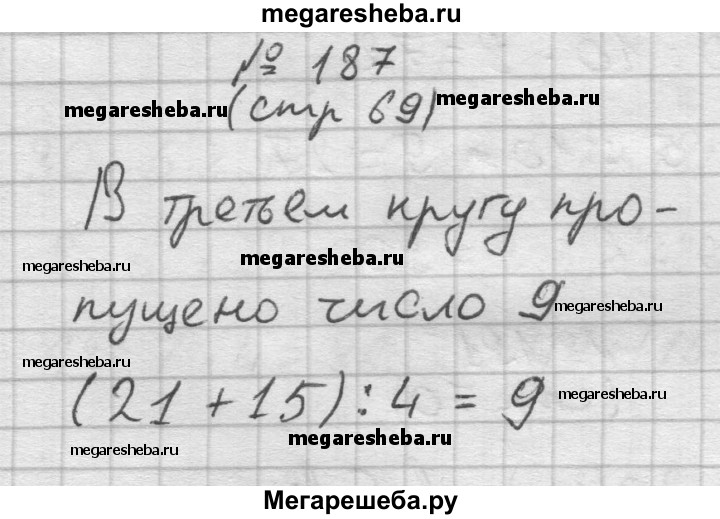 megaresheba.ru
№ 187
megaresheba.ru
(стр 69)
megaresheba.ru
В третьем кругу про-
megaresheba.ru
megaresheba.ru
пущено число 9
megaresheba.ru
megaresheba.ru
(21 + 15) : 4 = 9
megaresheba.ru
megaresheba.ru
megaresheba.ru
Мегарешеба.ру